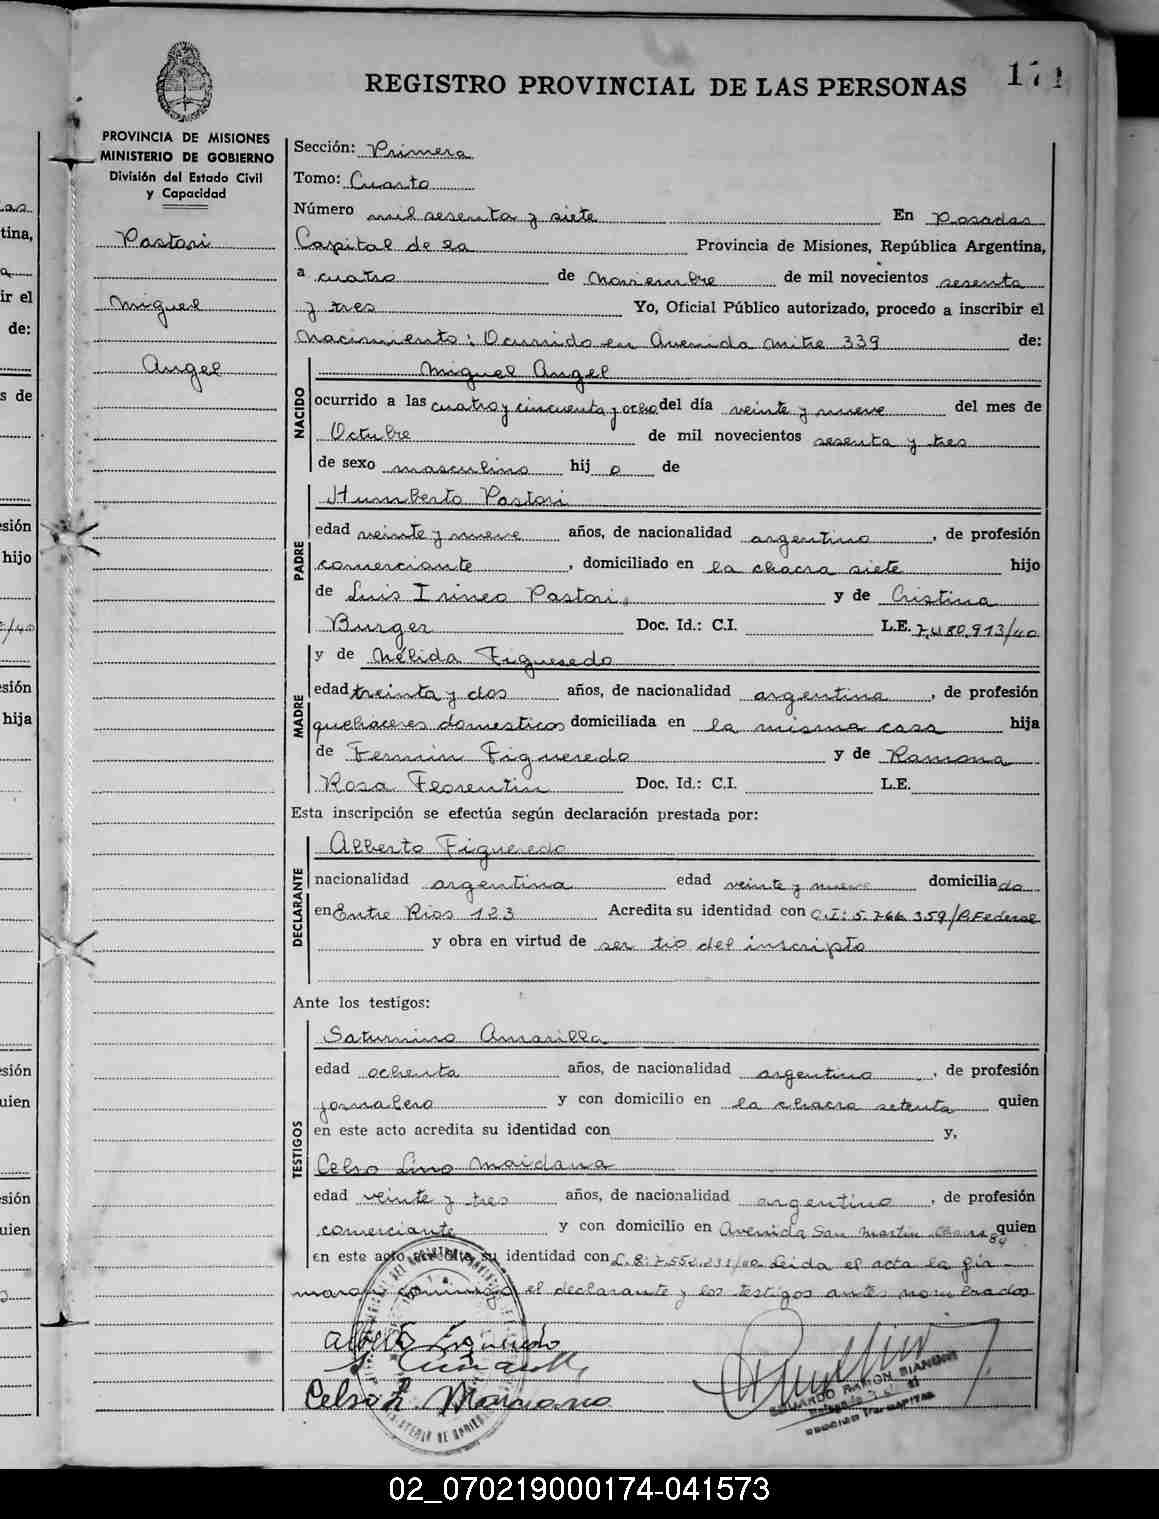 171
REGISTRO PROVINCIAL DE LAS PERSONAS
PROVINCIA DE MISIONES
MINISTERIO DE GOBIERNO
División del Estado Civil
y Capacidad
Pastori
Miguel
Angel
Sección: Primera
Tomo: Cuarto
Número mil sesenta y siete En Posadas
Capital de la Provincia de Misiones, República Argentina,
a cuatro de Noviembre de mil novecientos sesenta
y tres Yo, Oficial Público autorizado, procedo a inscribir el
Nacimiento: Ocurrido en Avenida Mitre 339 de:
NACIDO
Miguel Angel
ocurrido a las cuatro y cincuenta y ocho del día veinte y nueve del mes de
Octubre de mil novecientos sesenta y tres
de sexo masculino hij o de
PADRE
Humberto Pastori
edad veinte y nueve años, de nacionalidad argentino, de profesión
comerciante, domiciliado en la chacra siete hijo
de Luis Irineo Pastori y de Cristina
Burger Doc. Id.: C.I. L.E. 7.480.913/40
MADRE
y de Nélida Figueredo
edad treinta y dos años, de nacionalidad argentina, de profesión
quehaceres domesticos domiciliada en la misma casa hija
de Fermin Figueredo y de Ramona
Rosa Florentin Doc. Id.: C.I. L.E.
Esta inscripción se efectúa según declaración prestada por:
DECLARANTE
Alberto Figueredo
nacionalidad argentina edad veinte y nueve domiciliado
en Entre Rios 123 Acredita su identidad con C.I: 5.766.359/P.Federal
y obra en virtud de ser tio del inscripto
Ante los testigos:
TESTIGOS
Saturnino Amarilla
edad ochenta años, de nacionalidad argentino, de profesión
jornalero y con domicilio en la chacra setenta quien
en este acto acredita su identidad con y,
Celso Lino Maidana
edad veinte y tres años, de nacionalidad argentino, de profesión
comerciante y con domicilio en Avenida San Martin Chacra 84 quien
en este acto acredita su identidad con Leida el acta la fir-
maron conmigo el declarante y los testigos antes nombrados
Alberto Figueredo
Celso L.
EDUARDO RAMON
02_070219000174-041573